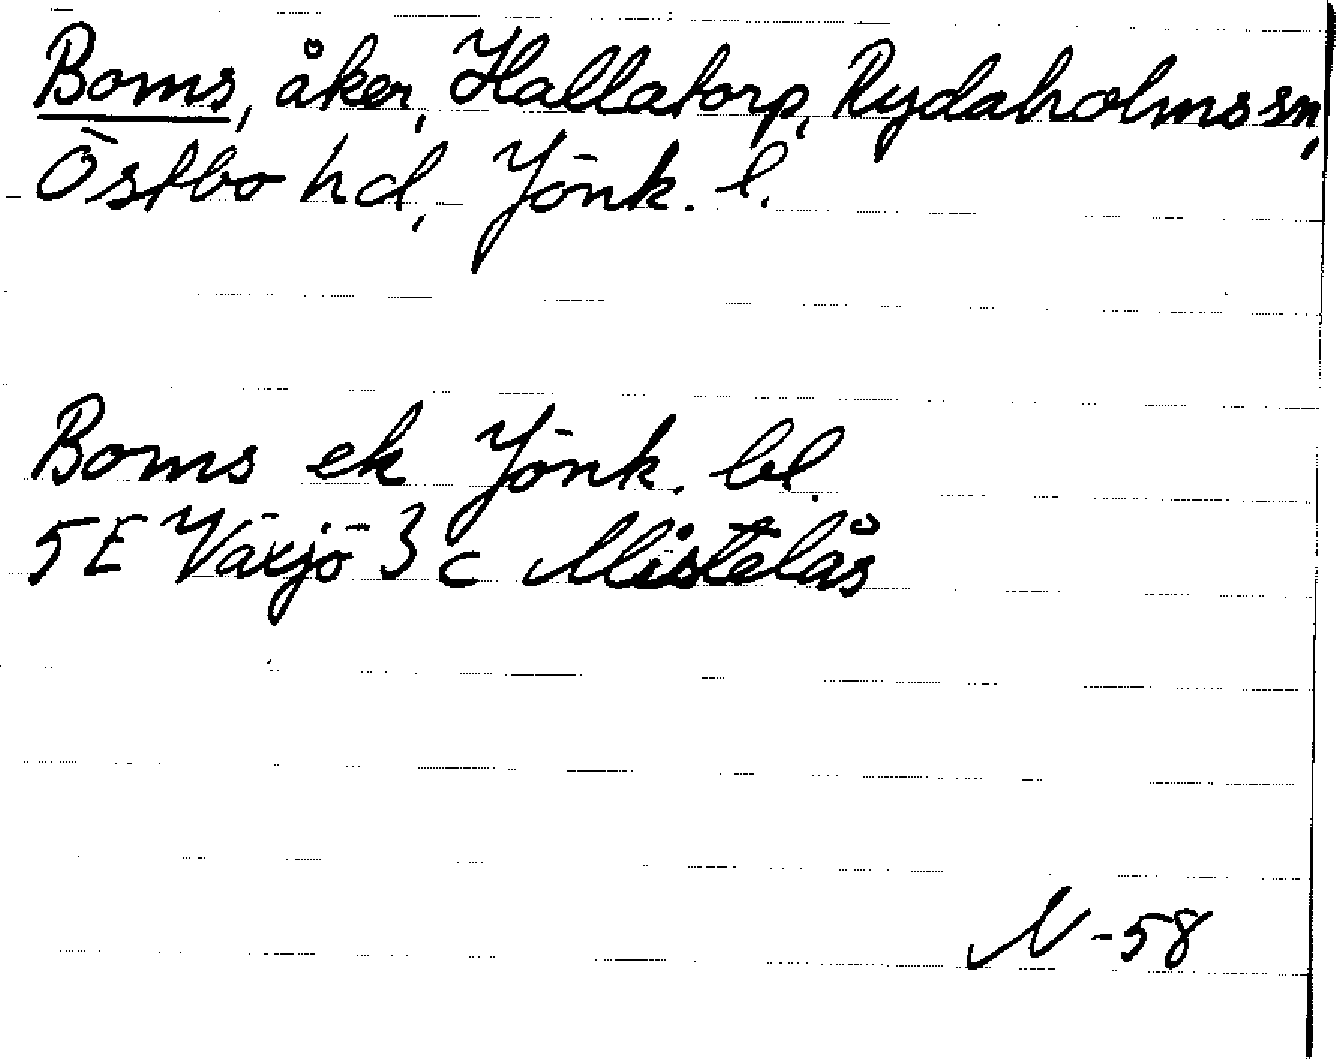 Boms, åker, Hallatorp, Rydaholms sn,
Östbo hd, Jönk. l.
Boms ek Jönk. bl.
5E Växjö 3c Mistelås
N-58